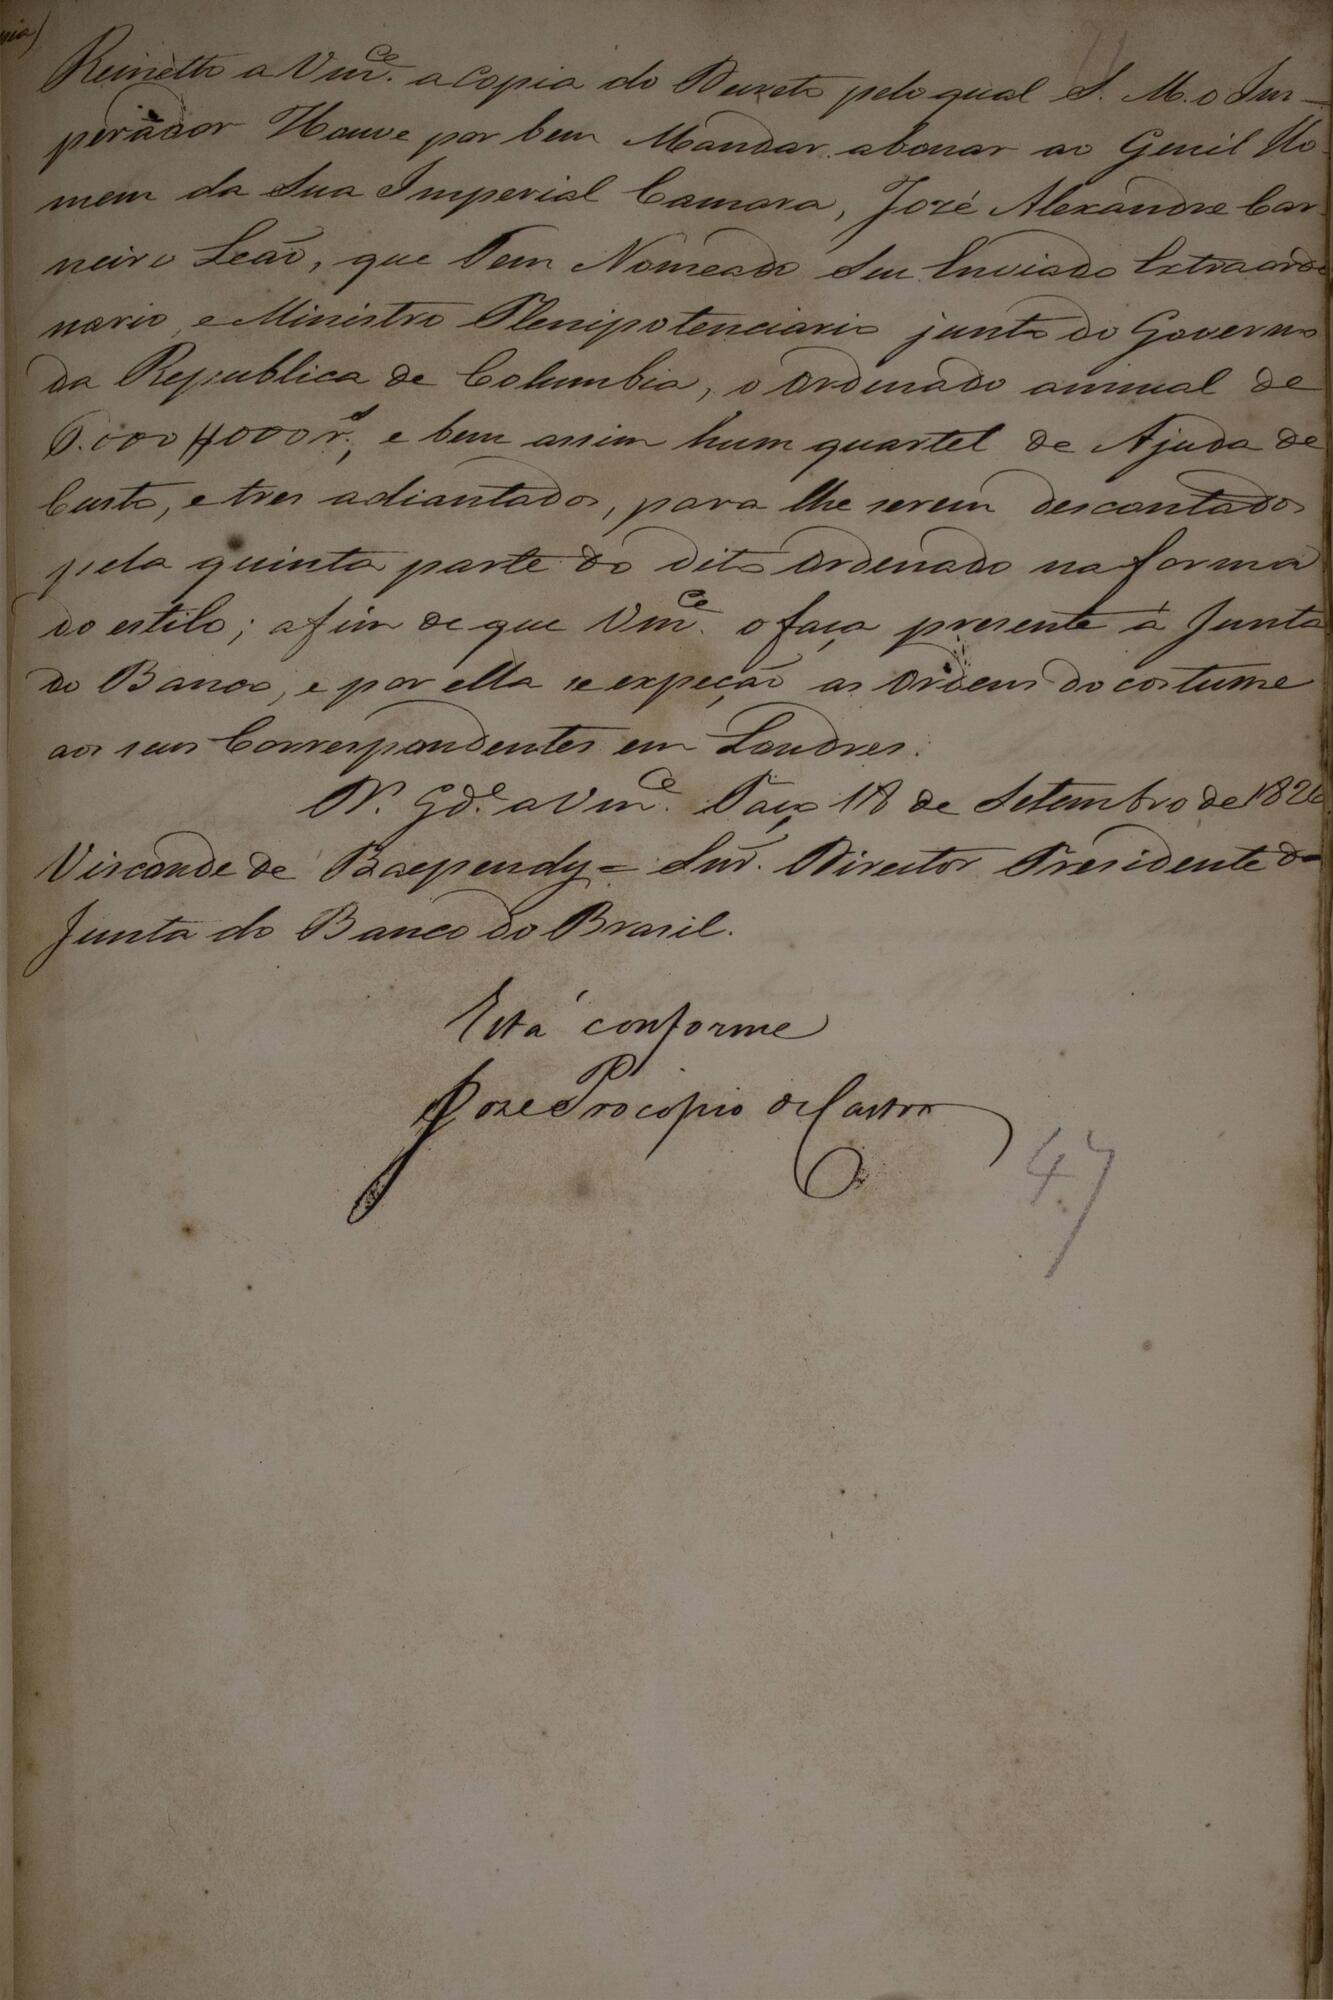 Remetto a Vm.ce a copia do Decreto pelo qual S. M. o Im-
perador Houve por bem Mandar abonar ao Genil Ho-
mem da Sua Imperial Camara, José Alexandre Car
neiro Leão, que Tem Nomeado Seu Enviado Extraordi
nario, e Ministro Plenipotenciario junto do Governo
da Republica de Columbia, o Ordenado annual de
6.000$000 r.s, e bem assim hum quartel de Ajuda de
Custo, e tres adiantados, para lhe serem descontados
pela quinta parte do dito Ordenado na forma
do estilo; afim de que Vm.ce o faça presente á Junta
do Banco, e por ella se expeção as Ordens do costume
aos seus Correspondentes em Londres.
D.s G.de a Vm.ce Paço 18 de Setembro de 1826
Visconde de Baependy = Snr. Director Presidente da
Junta do Banco do Brasil.
Está conforme
Jose Procopio de Castro
47